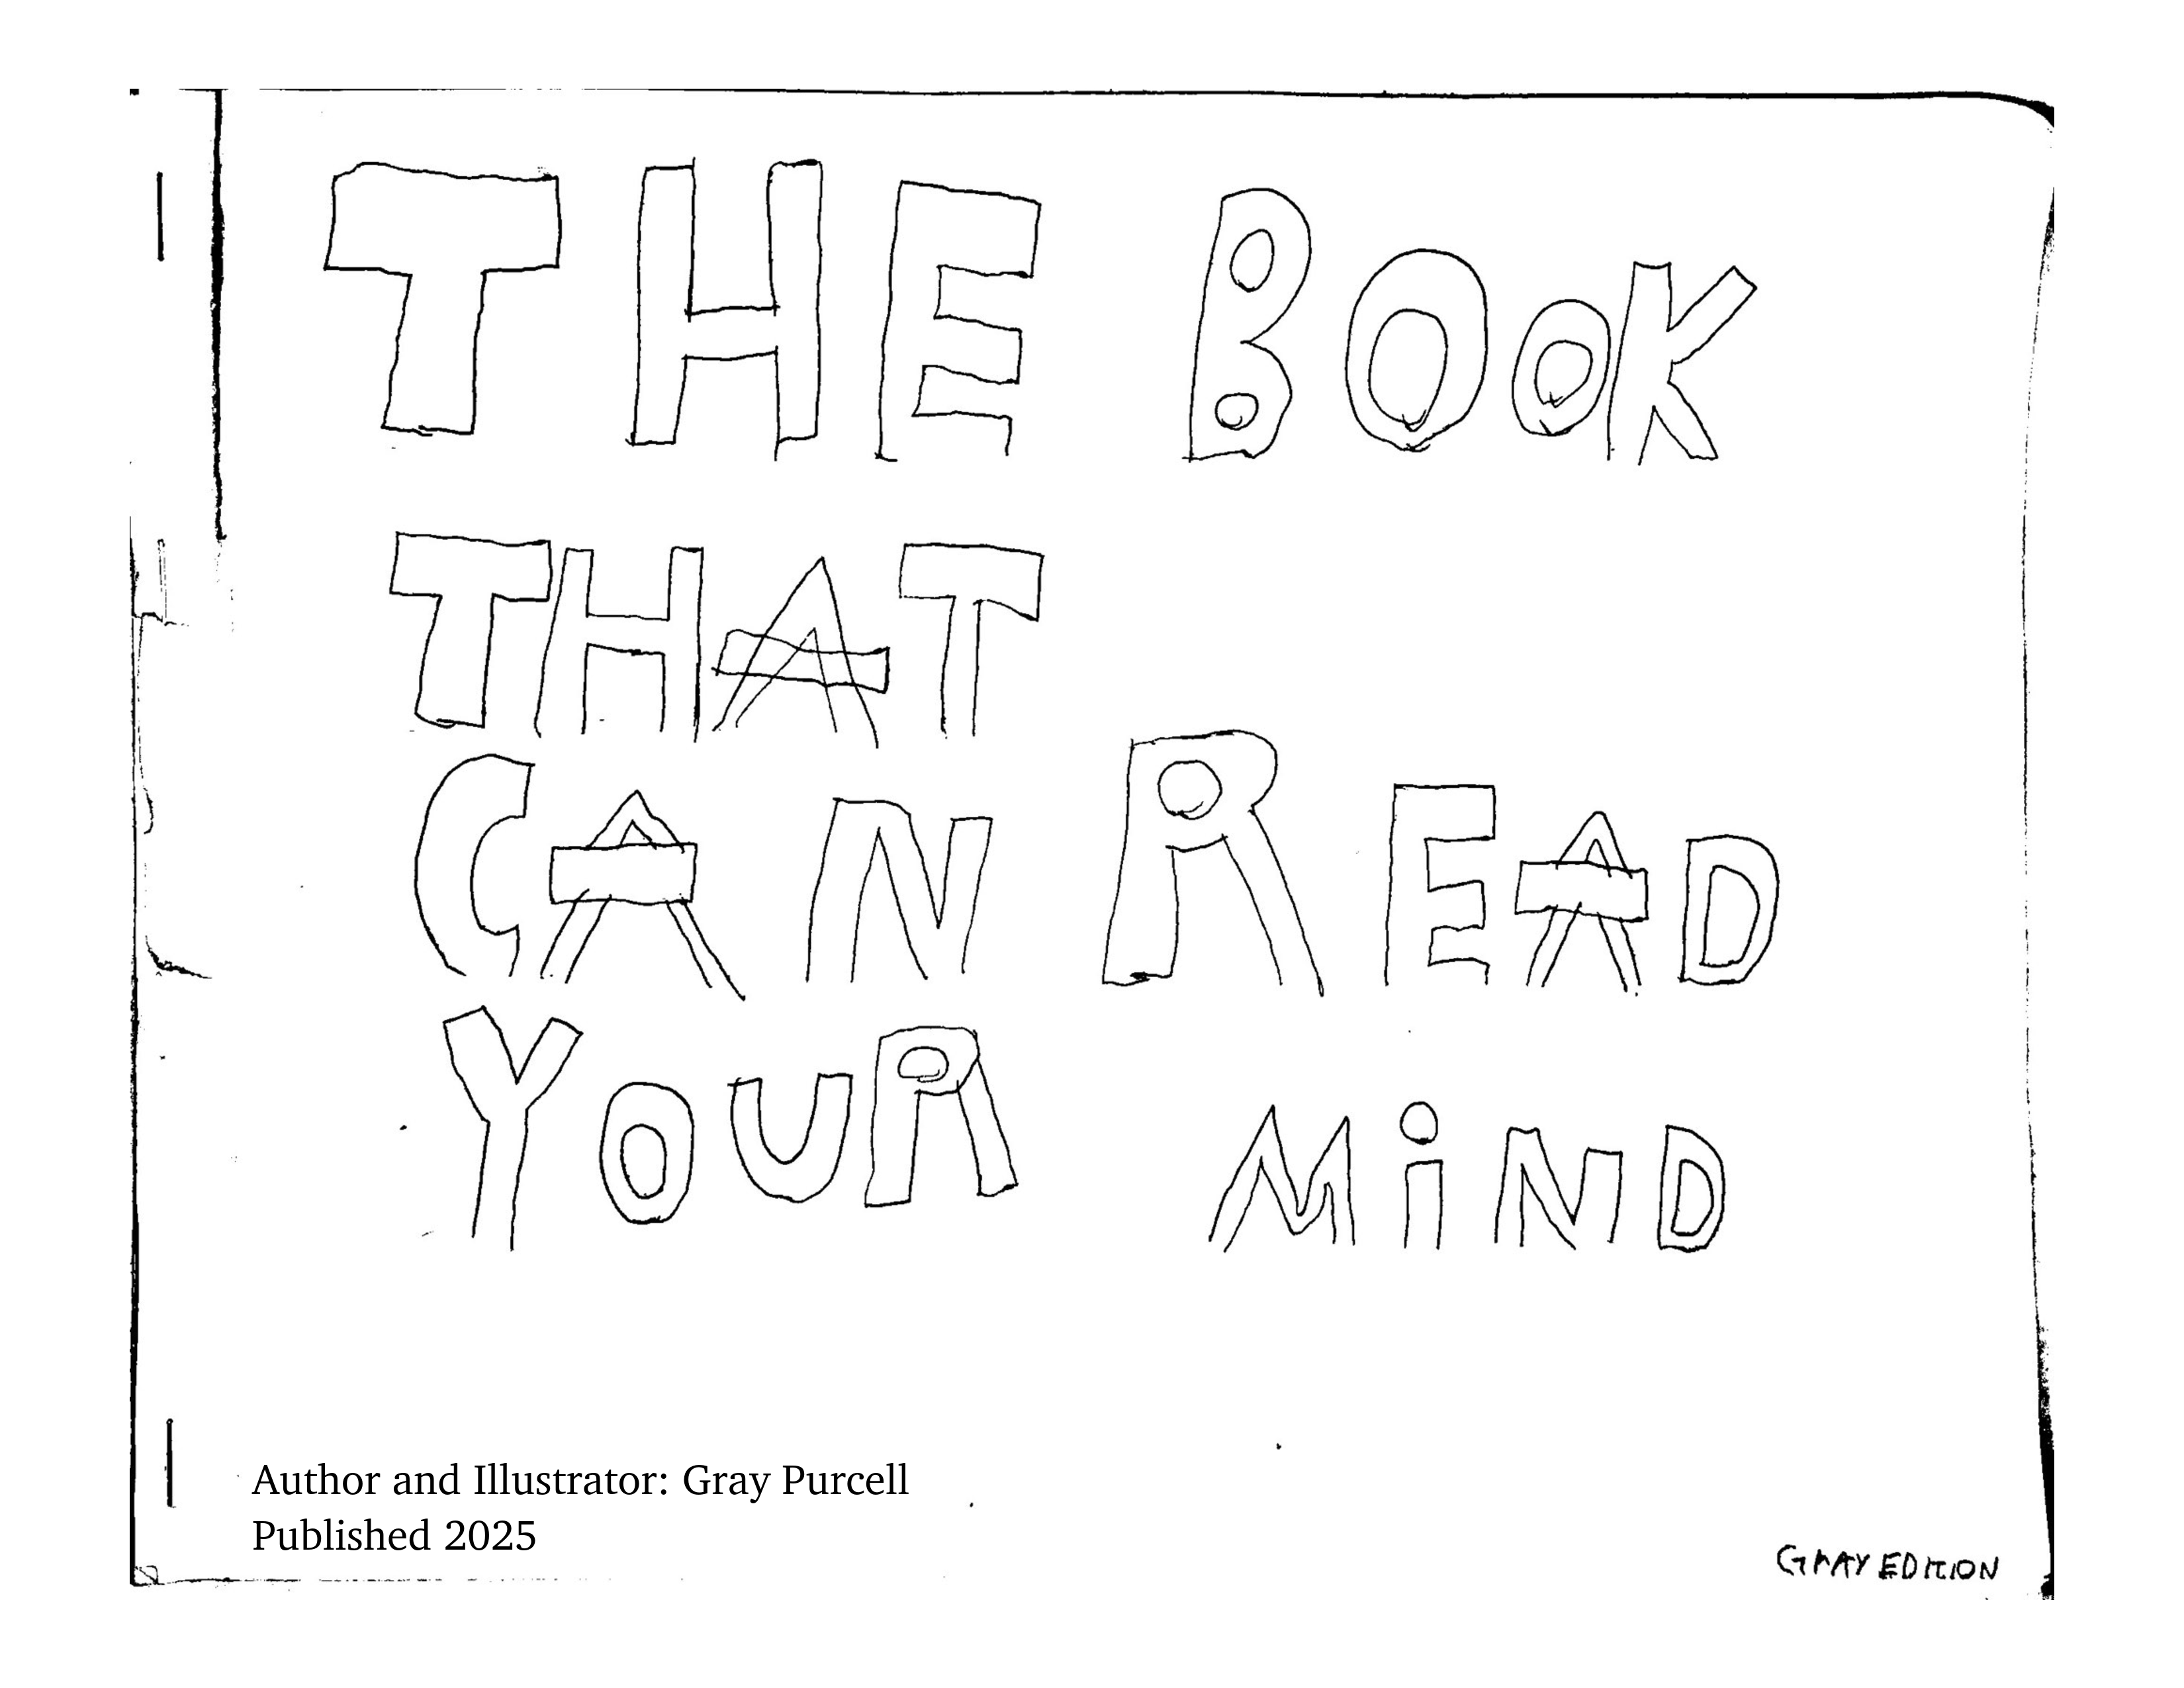 THE BOOK
THAT
CAN READ
YOUR MiND
Author and Illustrator: Gray Purcell
Published 2025
GRAY EDITION